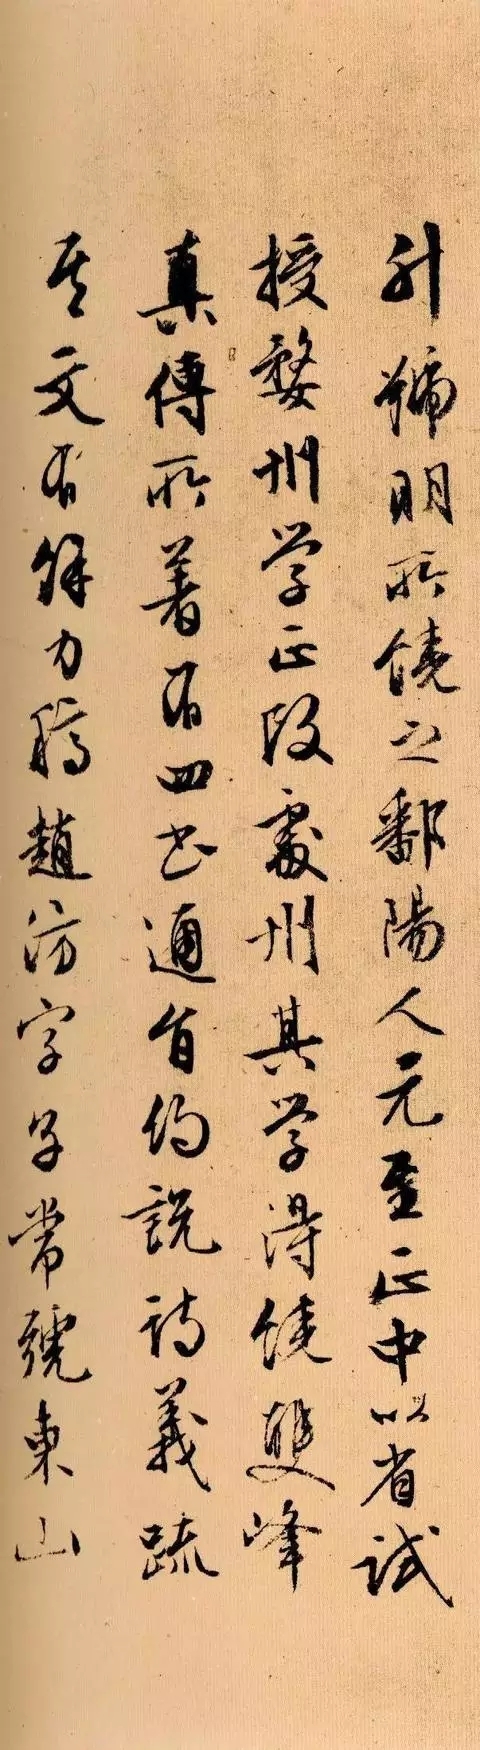 升號明所饒之鄱陽人元至正中以省試
授婺州学正改處州其学得饒雙峰
真傳所著有四書通旨約說詩義疏
其文有餘力焉趙汸字子常號東山